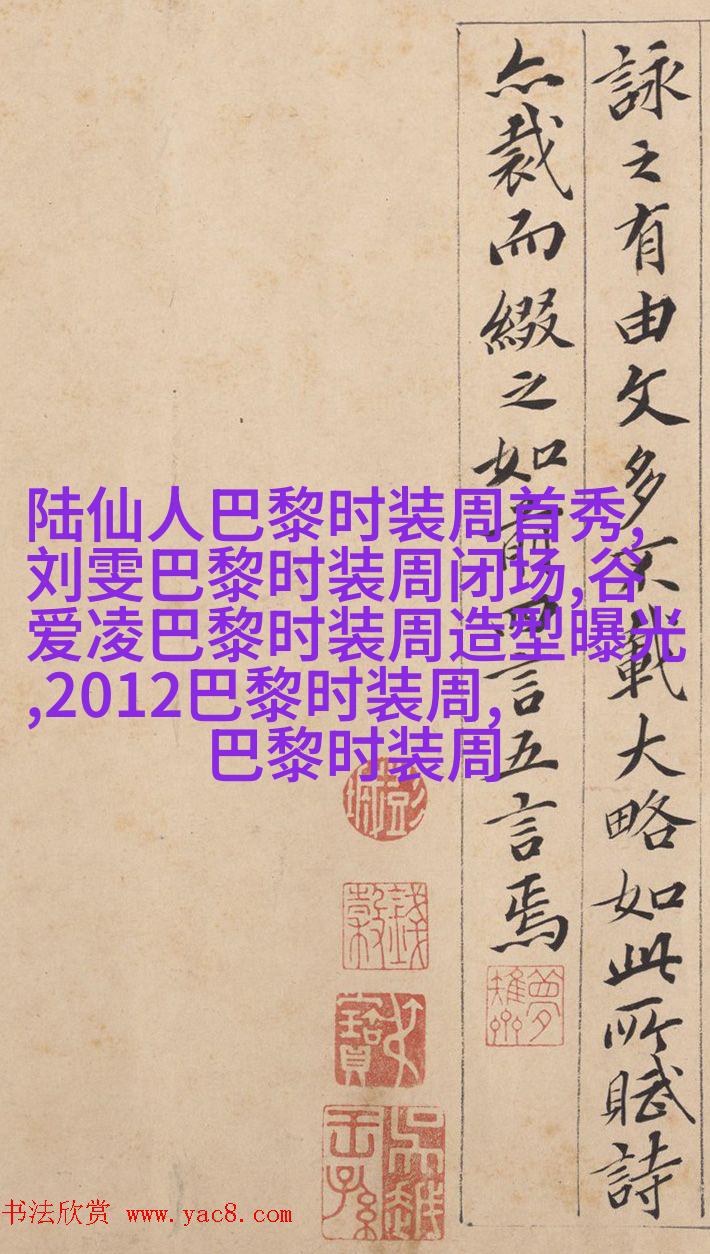 詠之有由文多不載大略如此所賦詩
亦裁而綴之如前四言五言焉
陆仙人巴黎时装周首秀,
刘雯巴黎时装周闭场,谷
爱凌巴黎时装周造型曝光
,2012巴黎时装周,
巴黎时装周
书法欣赏 www.yac8.com